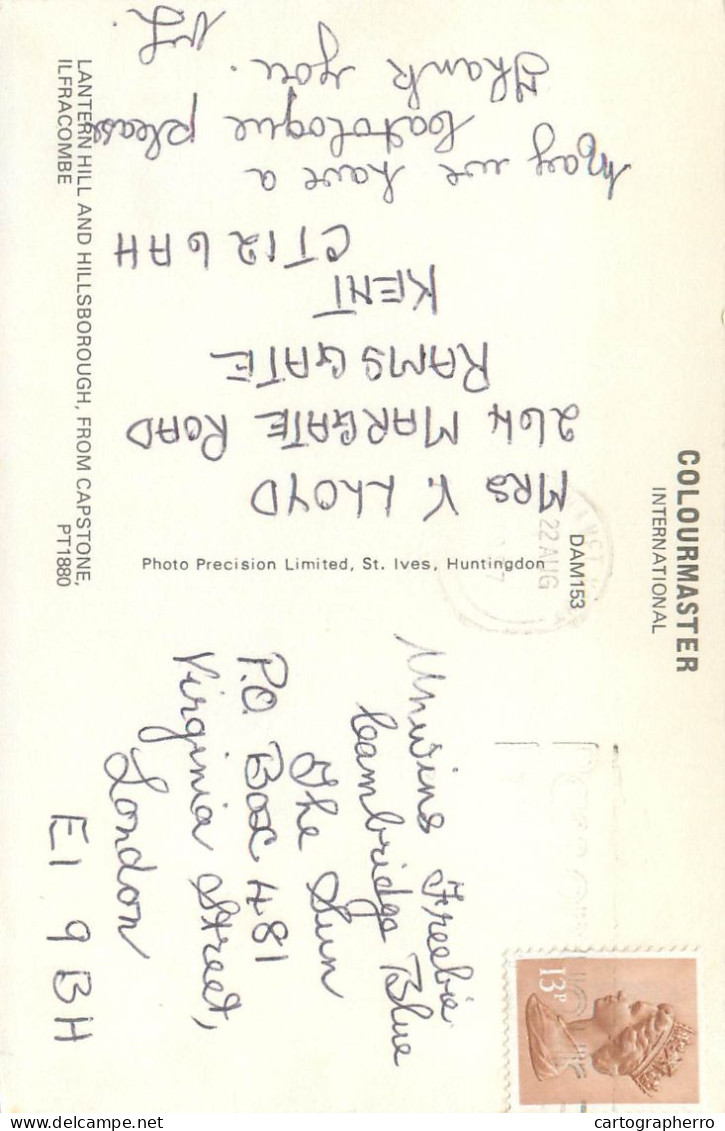 LANTERN HILL AND HILLSBOROUGH, FROM CAPSTONE,
ILFRACOMBE
PT1880
COLOURMASTER
INTERNATIONAL
DAM153
Photo Precision Limited, St. Ives, Huntingdon
MRS V. LLOYD
264 MARGATE ROAD
RAMSGATE
KENT
CT12 6AH
May we have a
Catologue please
Thank you.
VL.
22 AUG
13P
Unwins Freebie
Cambridge Blue
The Sun
P.O. Box 481
Virginia Street,
London
E1 9BH
cartographerro